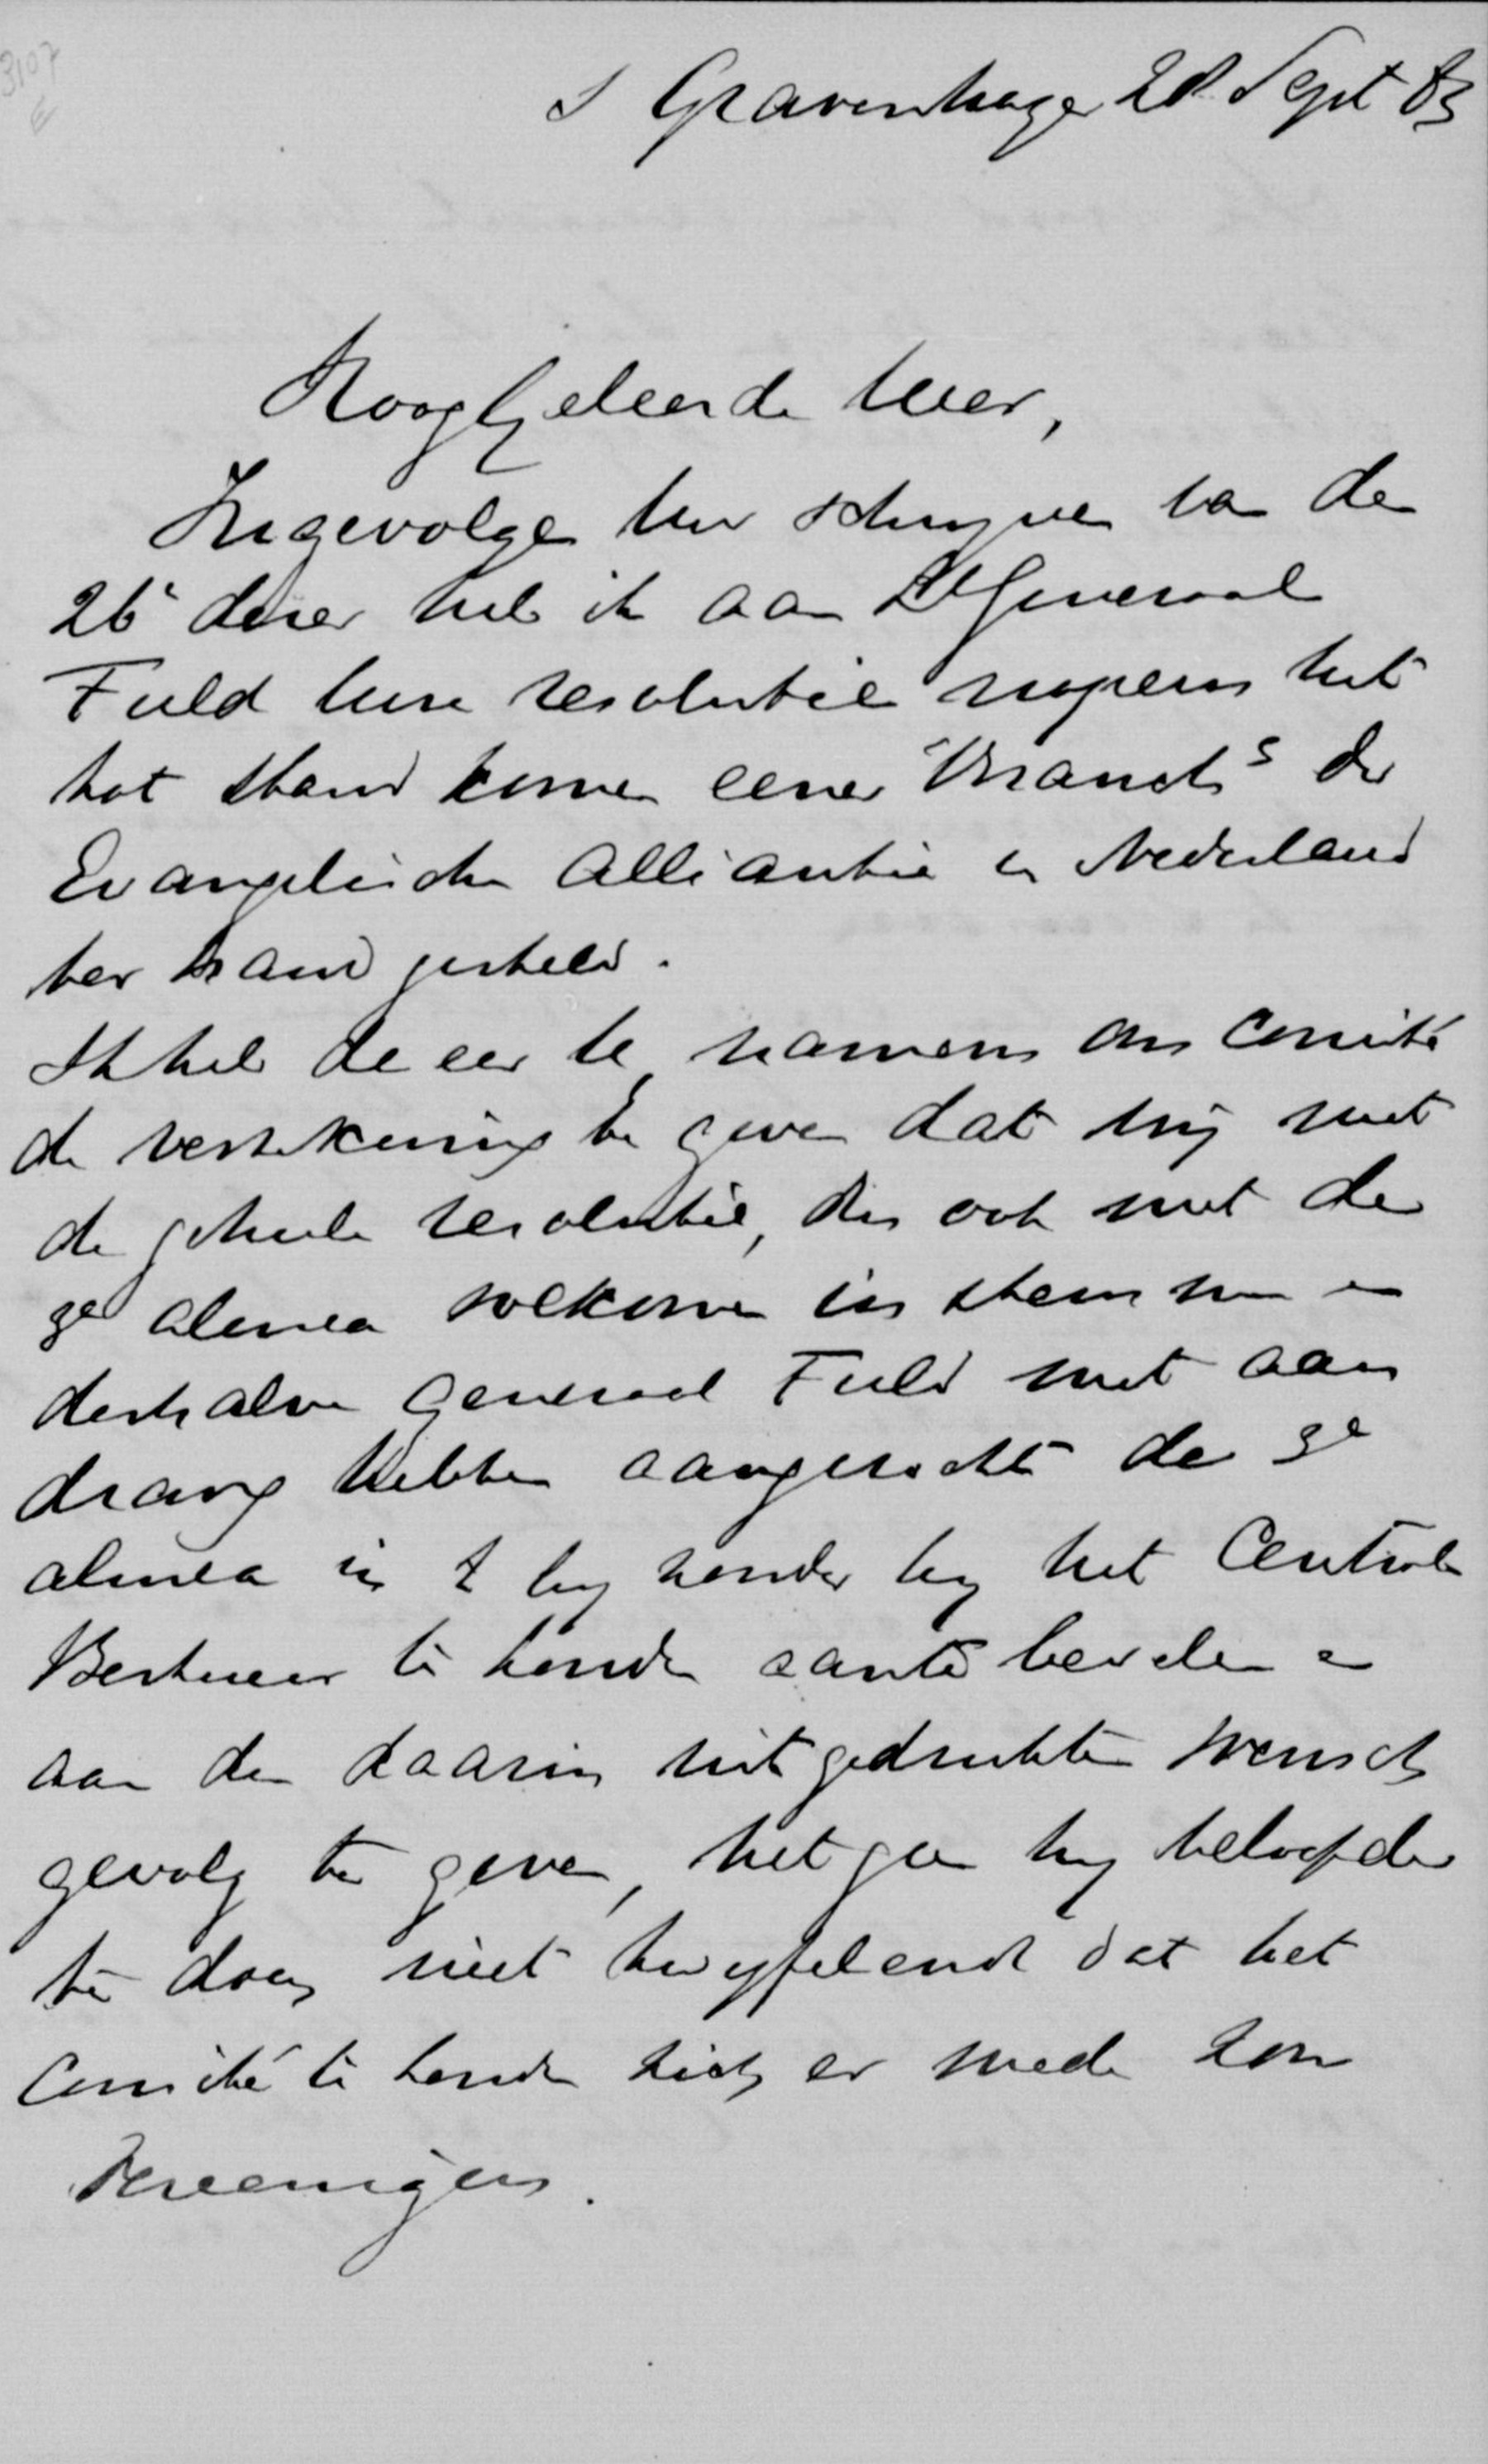 3107
E
s Gravenhage 28 Sept 83
HoogGeleerde Heer,
Ingevolge Uw schryven van den
26 dezer heb ik aan Lt Generaal
Field Uwe resolutie nopens het
tot stand komen eener Branch der
Evangelische Alliantie in Nederland
ter hand gesteld.
Ik heb de eer U namens ons Comité
de verzekering te geven dat wij met
de geheele resolutie, dus ook met de
3e alinea volkomen instemmen en
derhalve Generaal Field met aan
drang hebben aangezocht de 3e
alinea in t byzonder by het Centrale
Bestuur te Londen aantebevelen en
aan den daarin uitgedrukten wensch
gevolg te geven, hetgeen hy beloofde
te doen niet twyfelend dat het
Comité te Londen zich er mede zou
Vereenigen.